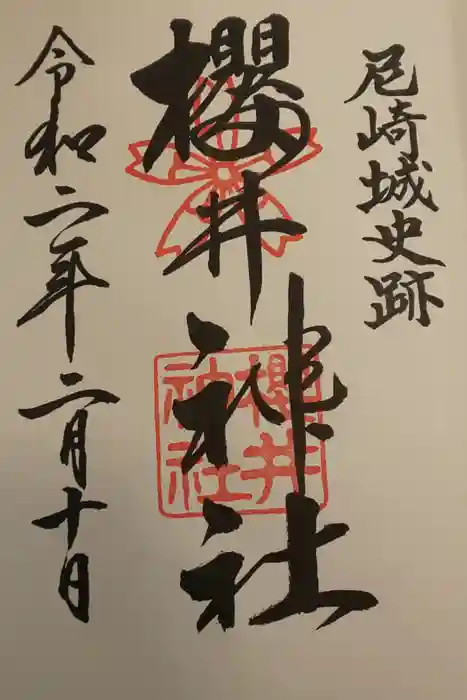 尼崎城史跡
櫻井神社
櫻井
神社
令和二年二月十日